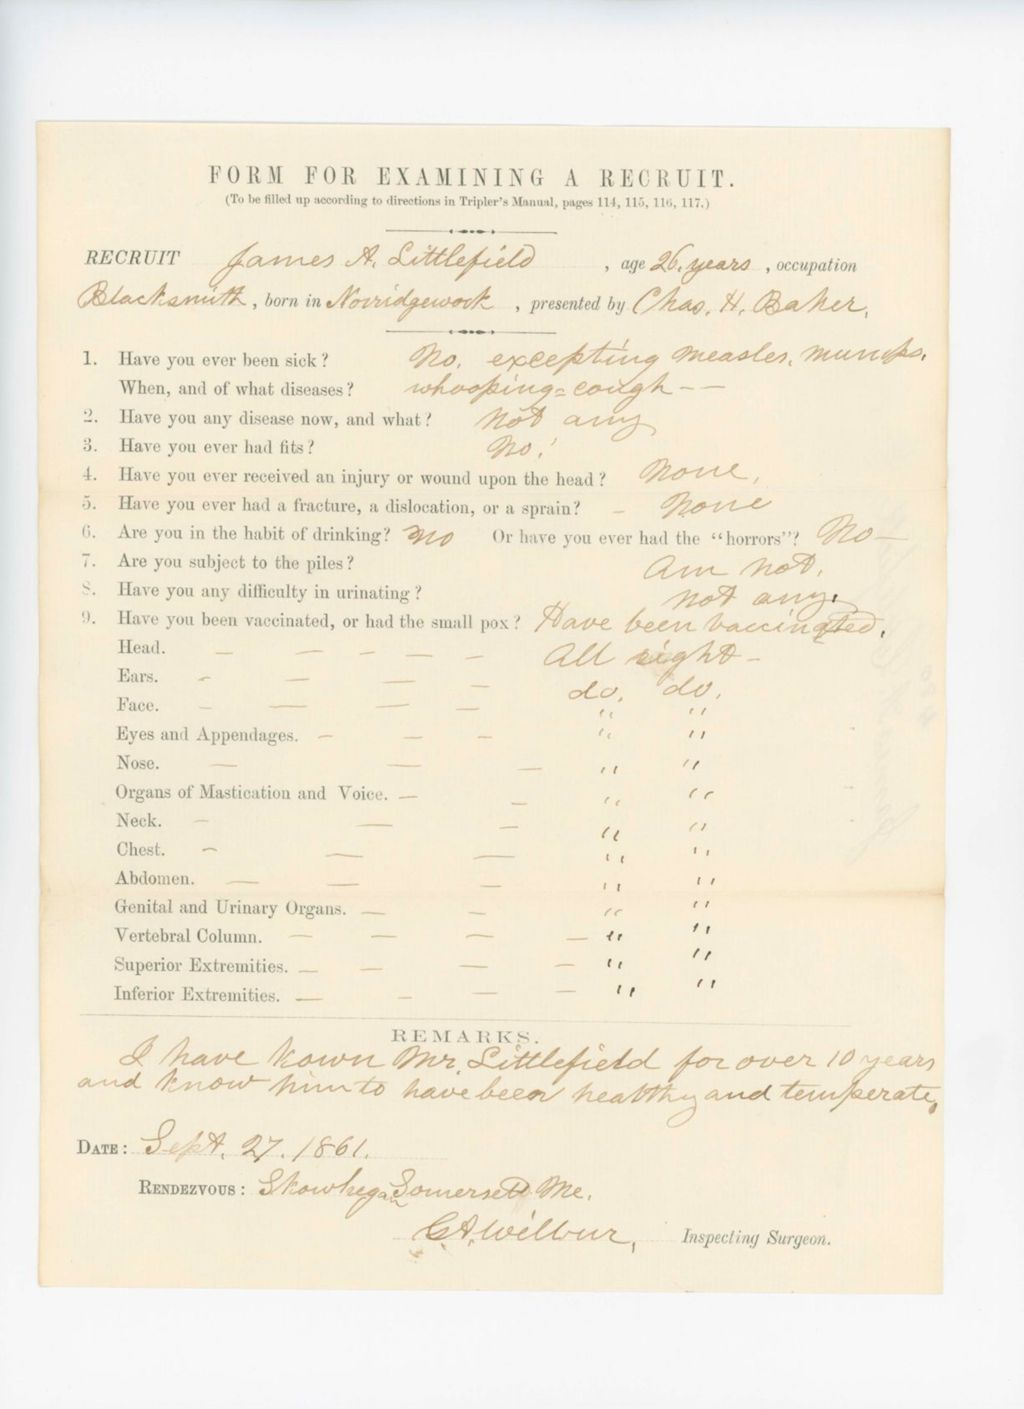 FORM FOR EXAMINING A RECRUIT.
(To be filled up according to directions in Tripler's Manual, pages 114, 115, 116, 117.)
RECRUIT James A. Littlefield , age 26. years , occupation
Blacksmith , born in Norridgewock , presented by Chas. H. Baker,
1. Have you ever been sick? No. excepting measles, mumps,
When, and of what diseases? whooping=cough — —
2. Have you any disease now, and what? Not any
3. Have you ever had fits? No.
4. Have you ever received an injury or wound upon the head? None,
5. Have you ever had a fracture, a dislocation, or a sprain? – None
6. Are you in the habit of drinking? No Or have you ever had the "horrors"? No —
7. Are you subject to the piles? Am not.
8. Have you any difficulty in urinating? Not any.
9. Have you been vaccinated, or had the small pox? Have been vaccinated.
Head. — — — — — All right —
Ears. – — — — do. do.
Face. — — — — " "
Eyes and Appendages. — — — " "
Nose. — — — " "
Organs of Mastication and Voice. — — " "
Neck. — — — " "
Chest. — — — " "
Abdomen. — — — " "
Genital and Urinary Organs. — — " "
Vertebral Column. — — — — " "
Superior Extremities. — — — — " "
Inferior Extremities. — — — — " "
REMARKS.
I have kown Mr. Littlefield for over 10 years
and know him to have been healthy and temperate.
DATE: Sept. 27. 1861.
RENDEZVOUS: Skowhegan Somerset Me.
C.A. Wilbur, Inspecting Surgeon.